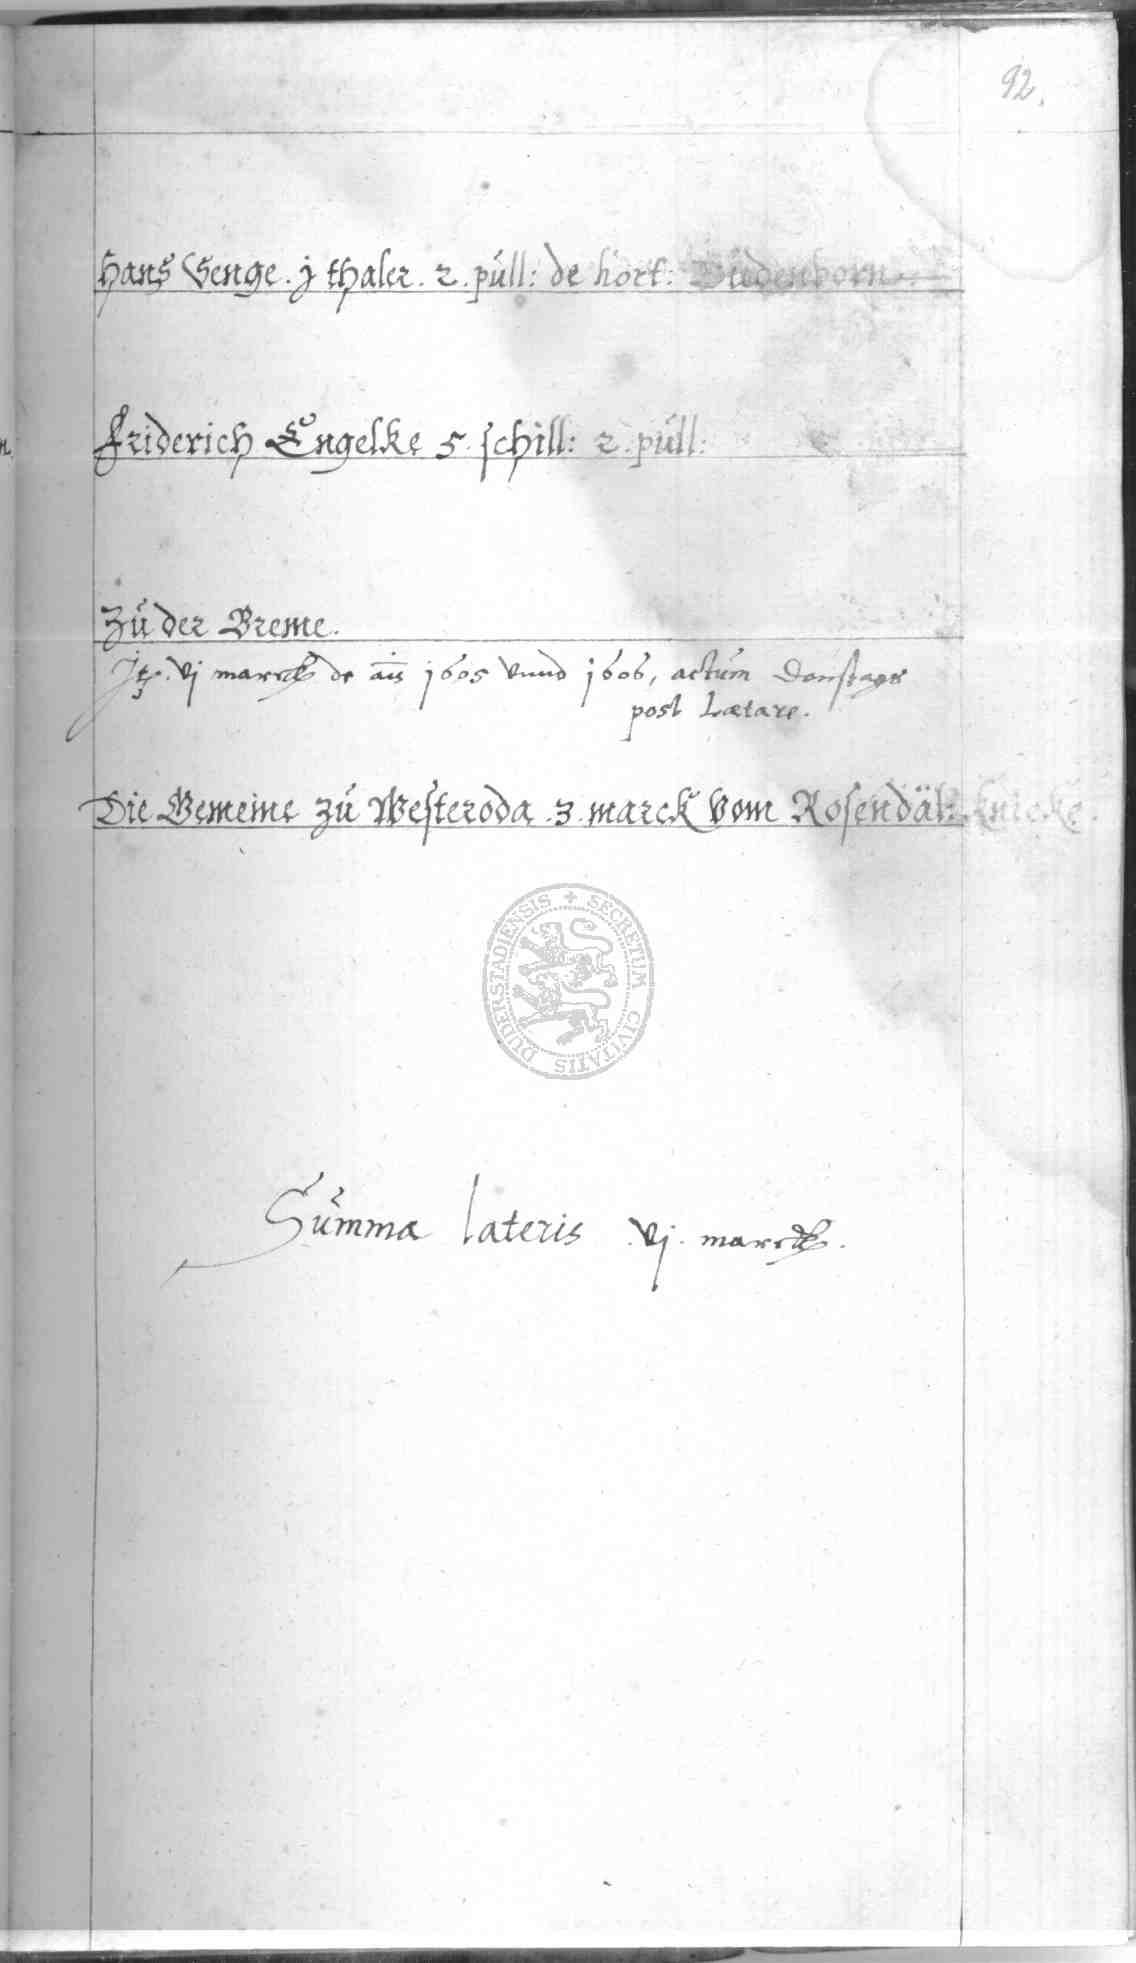 92.
Hans Senge . j thaler . 2 . pull: de hort: Büdenborn .
Friderich Engelke 5 . schill: 2 . pull:
Zu der Breme .
vj marck de 1605 vnnd 1606, actum Donstags
post Lætare .
Die Gemeine zu Westeroda . 3 . marck vom Rosendäl: knicke .
DUDERSTADIENSIS + SECRETUM CIVITATIS
Summa lateris . vj . marck .